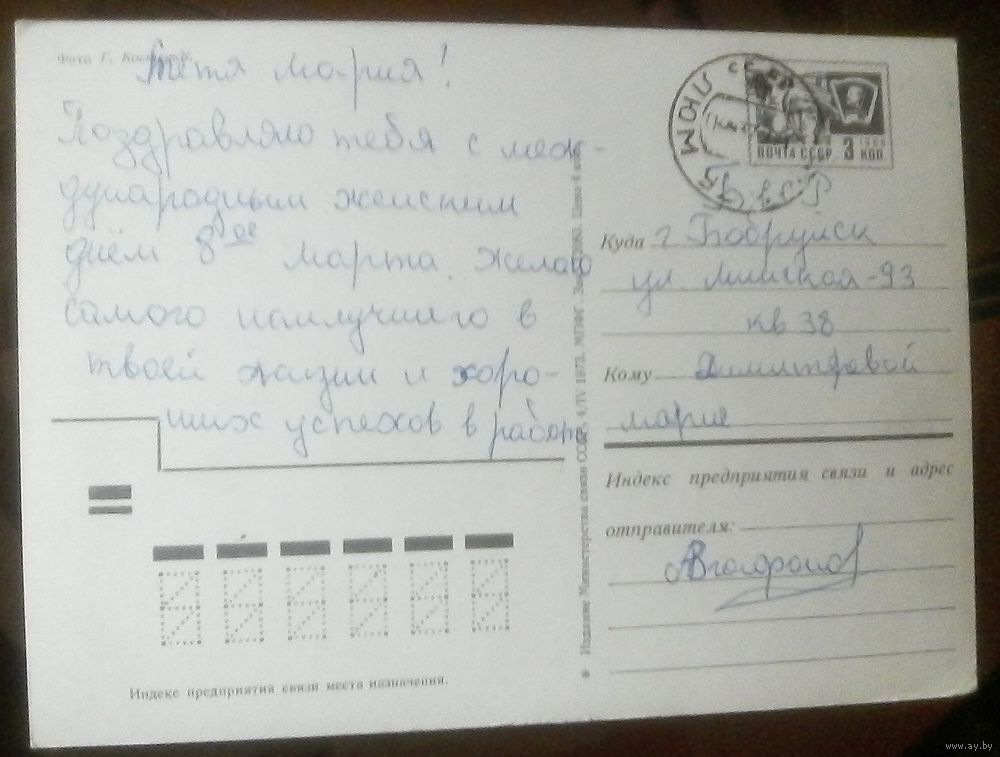 Фото Г. Костенко
Тётя Мария!
Поздравляю тебя с меж-
дународным женским
днём 8ое марта. Желаю
самого наилучшего в
твоей жизни и хоро-
ших успехов в работе
Индекс предприятия связи места назначения.
Издание Министерства связи СССР. 4/IV 1973. МПФГ.
ПОЧТА СССР 3 КОП
Куда г Бобруйск
ул. Минская-93
кв 38
Кому Димитровой
марие
Индекс предприятия связи и адрес
отправителя:
www.ay.by